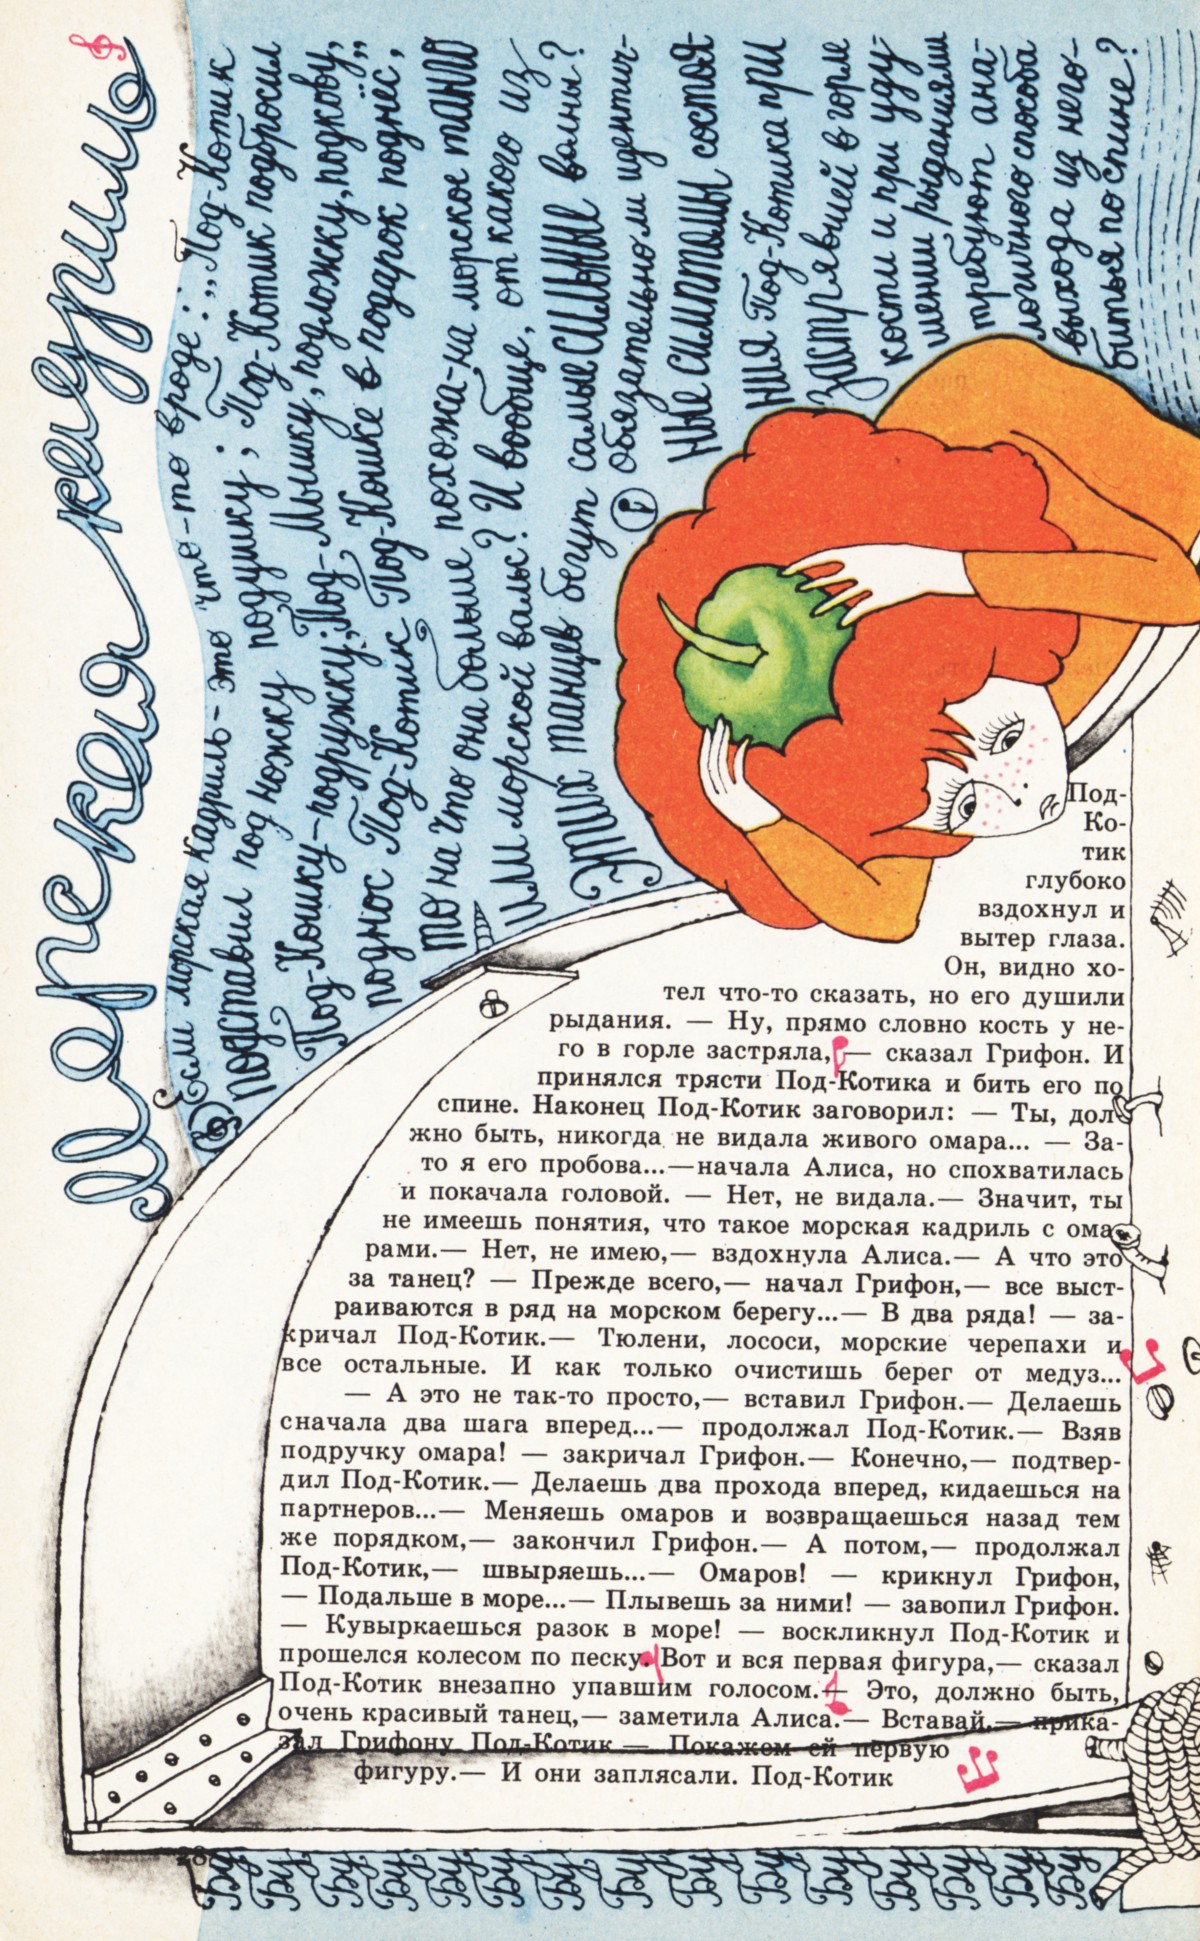 Морская кадриль
Если морская кадриль – это что-то вроде: „Под-Котик
подставил под ножку подушку; Под-Котик подбросил
Под-Кошку-подружку; Под-Мышку, подложку, подкову,
поднос Под-Котик Под-Кошке в подарок поднёс,“
то на что она больше похожа-на морское танго
или морской вальс? И вообще, от какого из
этих танцев бегут самые сильные волны?
Обязательно ли идентич-
ные симптомы состоя-
ния Под-Котика при
застрявшей в горле
кости и при уду-
шении рыданиями
требуют ана-
логичного способа
выхода из него-
битья по спине?
Под-
Ко-
тик
глубоко
вздохнул и
вытер глаза.
Он, видно хо-
тел что-то сказать, но его душили
рыдания. — Ну, прямо словно кость у не-
го в горле застряла, — сказал Грифон. И
принялся трясти Под-Котика и бить его по
спине. Наконец Под-Котик заговорил: — Ты, дол-
жно быть, никогда не видала живого омара... — За-
то я его пробова...—начала Алиса, но спохватилась
и покачала головой. — Нет, не видала.— Значит, ты
не имеешь понятия, что такое морская кадриль с ома-
рами.— Нет, не имею,— вздохнула Алиса.— А что это
за танец? — Прежде всего,— начал Грифон,— все выст-
раиваются в ряд на морском берегу...— В два ряда! — за-
кричал Под-Котик.— Тюлени, лососи, морские черепахи и
все остальные. И как только очистишь берег от медуз...
— А это не так-то просто,— вставил Грифон.— Делаешь
сначала два шага вперед...— продолжал Под-Котик.— Взяв
подручку омара! — закричал Грифон.— Конечно,— подтвер-
дил Под-Котик.— Делаешь два прохода вперед, кидаешься на
партнеров...— Меняешь омаров и возвращаешься назад тем
же порядком,— закончил Грифон.— А потом,— продолжал
Под-Котик,— швыряешь...— Омаров! — крикнул Грифон,
— Подальше в море...— Плывешь за ними! — завопил Грифон.
— Кувыркаешься разок в море! — воскликнул Под-Котик и
прошелся колесом по песку. Вот и вся первая фигура,— сказал
Под-Котик внезапно упавшим голосом.— Это, должно быть,
очень красивый танец,— заметила Алиса.— Вставай,— прика-
зал Грифону Под-Котик.— Покажем ей первую
фигуру.— И они заплясали. Под-Котик
28